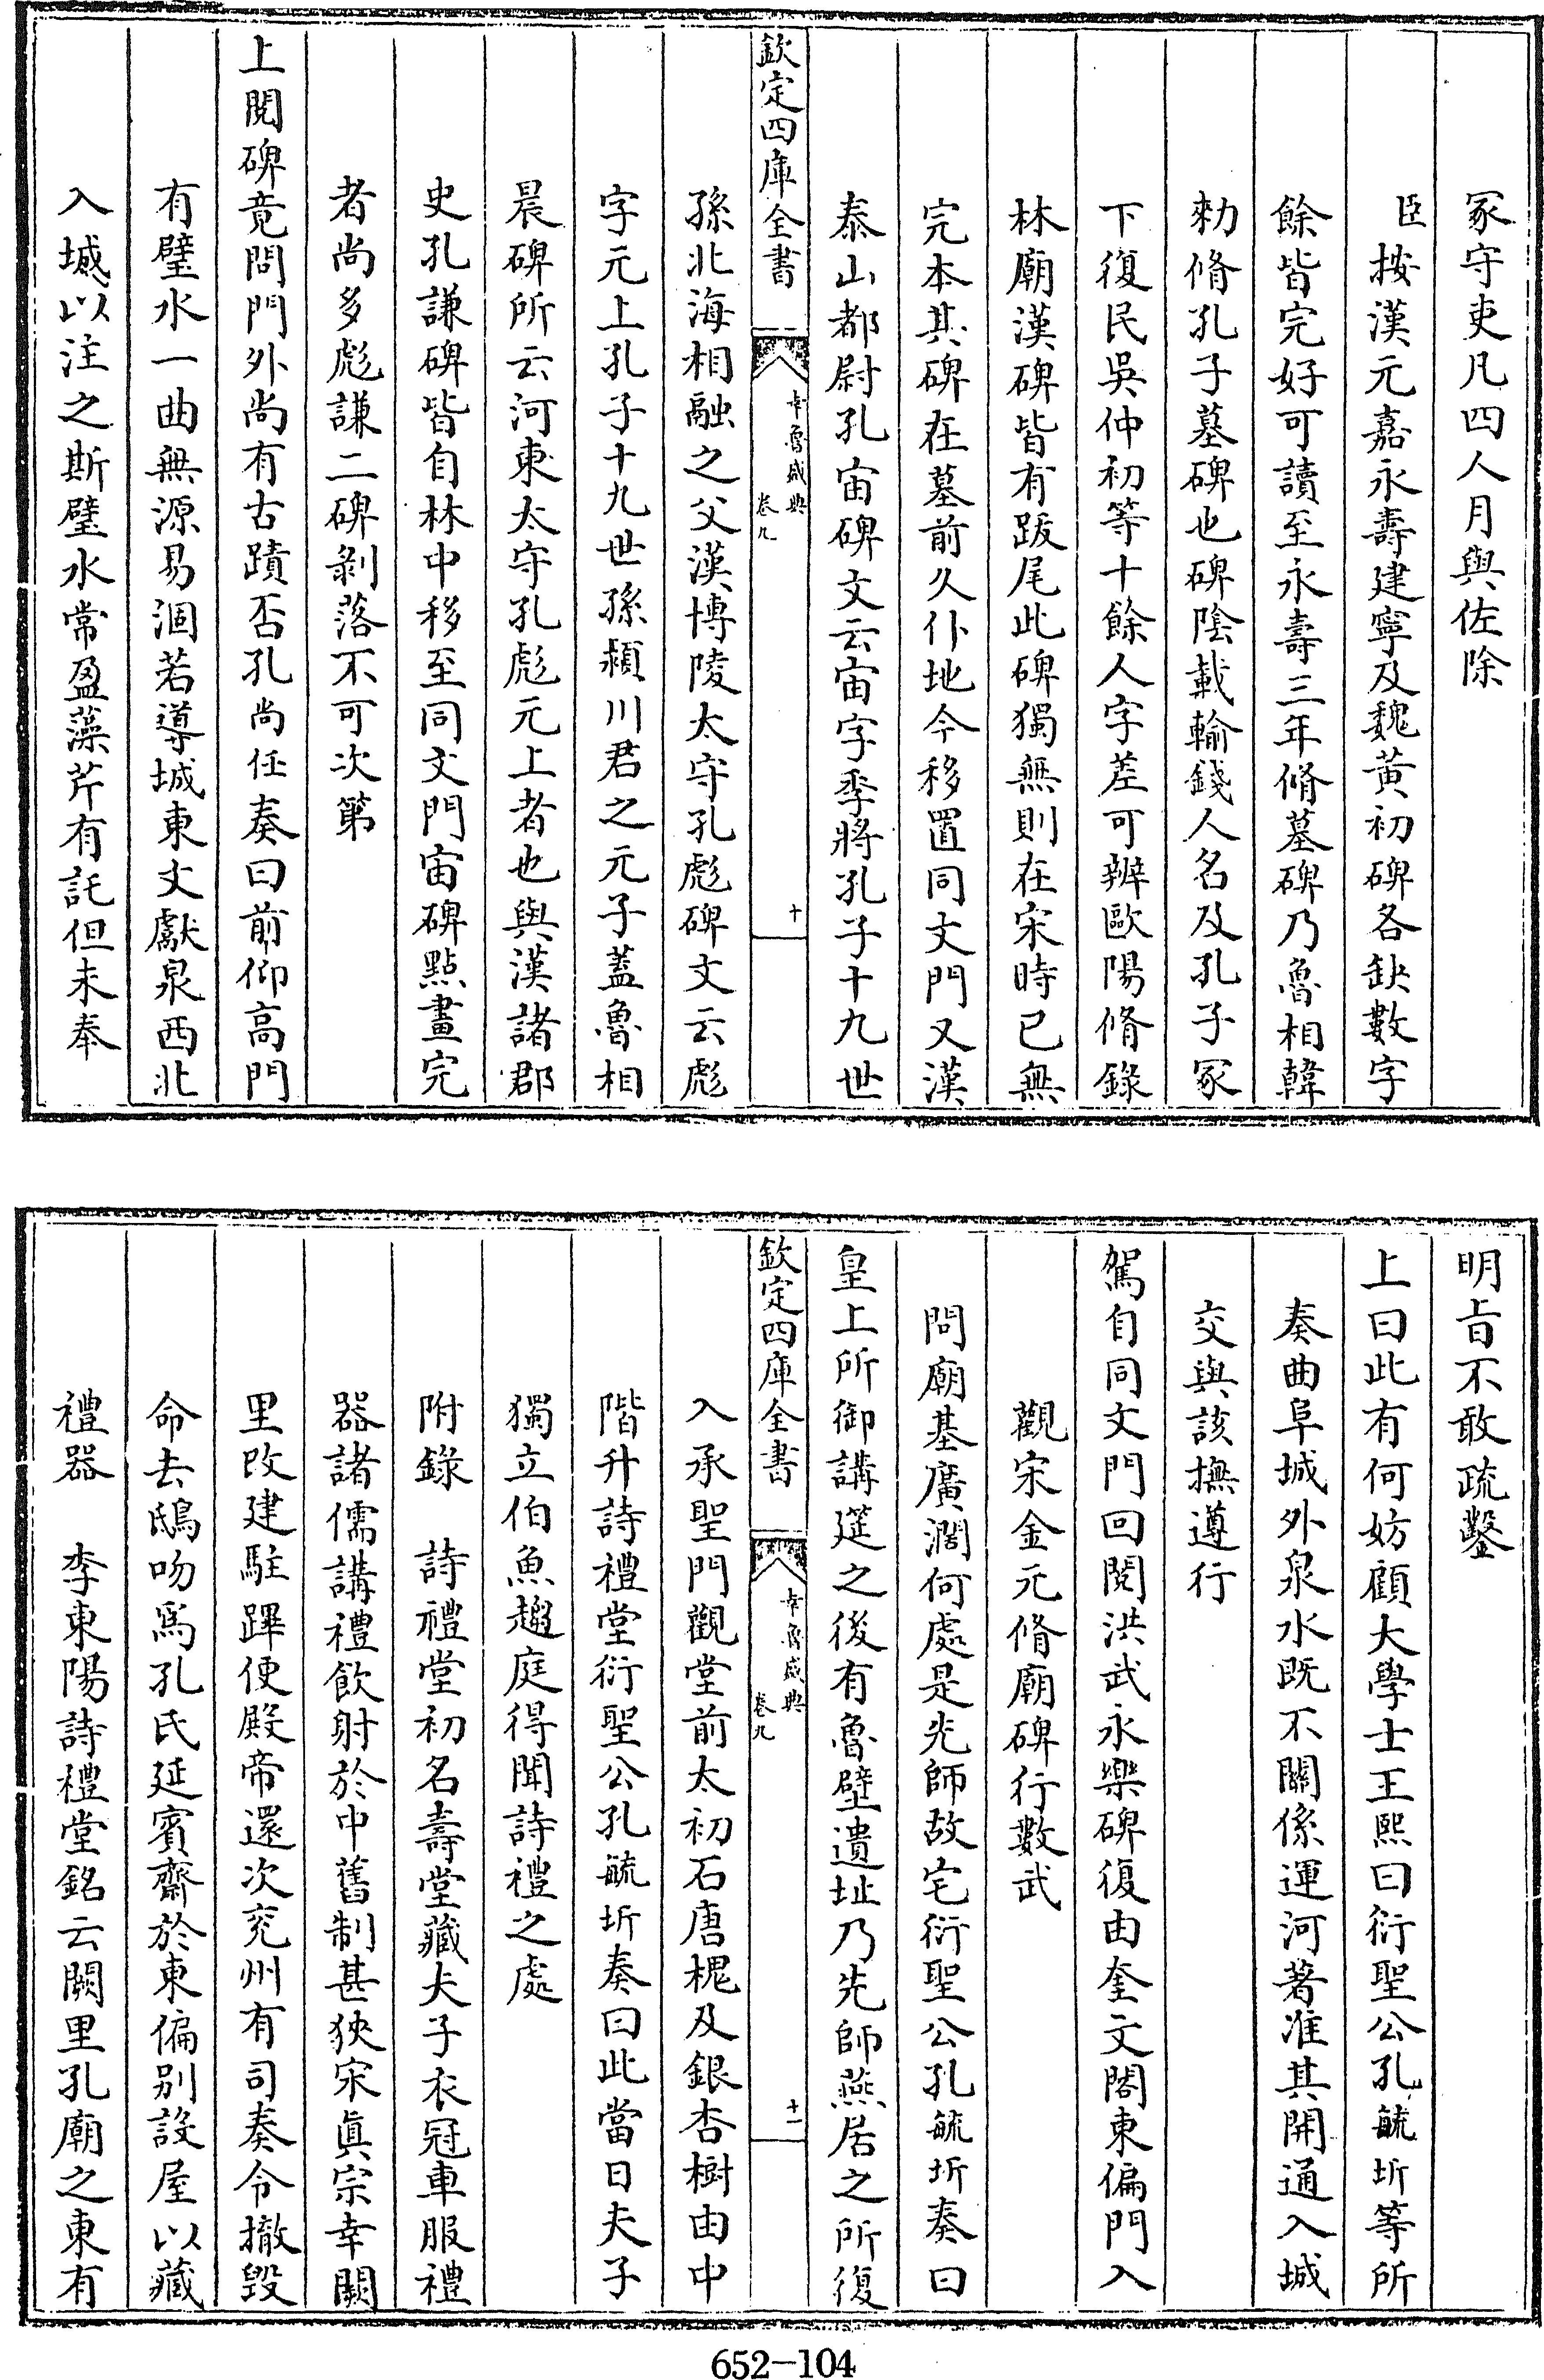 冢守吏凡四人月與佐除
臣按漢元嘉永壽建寧及魏黃初碑各缺數字
餘皆完好可讀至永壽三年脩墓碑乃魯相韓
勑脩孔子墓碑也碑陰載輸錢人名及孔子冢
下復民吳仲初等十餘人字差可辨歐陽脩錄
林廟漢碑皆有跋尾此碑獨無則在宋時已無
完本其碑在墓前久仆地今移置同文門又漢
泰山都尉孔宙碑文云宙字季將孔子十九世
欽定四庫全書 幸魯盛典 卷九 十
孫北海相融之父漢博陵太守孔彪碑文云彪
字元上孔子十九世孫潁川君之元子蓋魯相
晨碑所云河東太守孔彪元上者也與漢諸郡
史孔謙碑皆自林中移至同文門宙碑點畫完
者尚多彪謙二碑剝落不可次第
上閱碑竟問門外尚有古蹟否孔尚任奏曰前仰高門
有璧水一曲無源易涸若導城東文獻泉西北
入城以注之斯璧水常盈藻芹有託但未奉
明旨不敢疏鑿
上曰此有何妨顧大學士王熙曰衍聖公孔毓圻等所
奏曲阜城外泉水既不關係運河著准其開通入城
交與該撫遵行
駕自同文門回閱洪武永樂碑復由奎文閣東偏門入
觀宋金元脩廟碑行數武
問廟基廣濶何處是先師故宅衍聖公孔毓圻奏曰
皇上所御講筵之後有魯壁遺址乃先師燕居之所復
欽定四庫全書 幸魯盛典 卷九 十一
入承聖門觀堂前太初石唐槐及銀杏樹由中
階升詩禮堂衍聖公孔毓圻奏曰此當日夫子
獨立伯魚趨庭得聞詩禮之處
附錄 詩禮堂初名壽堂藏夫子衣冠車服禮
器諸儒講禮飲射於中舊制甚狹宋真宗幸闕
里改建駐蹕便殿帝還次兖州有司奏令撤毀
命去鴟吻為孔氏延賓齋於東偏别設屋以藏
禮器 李東陽詩禮堂銘云闕里孔廟之東有
652—104